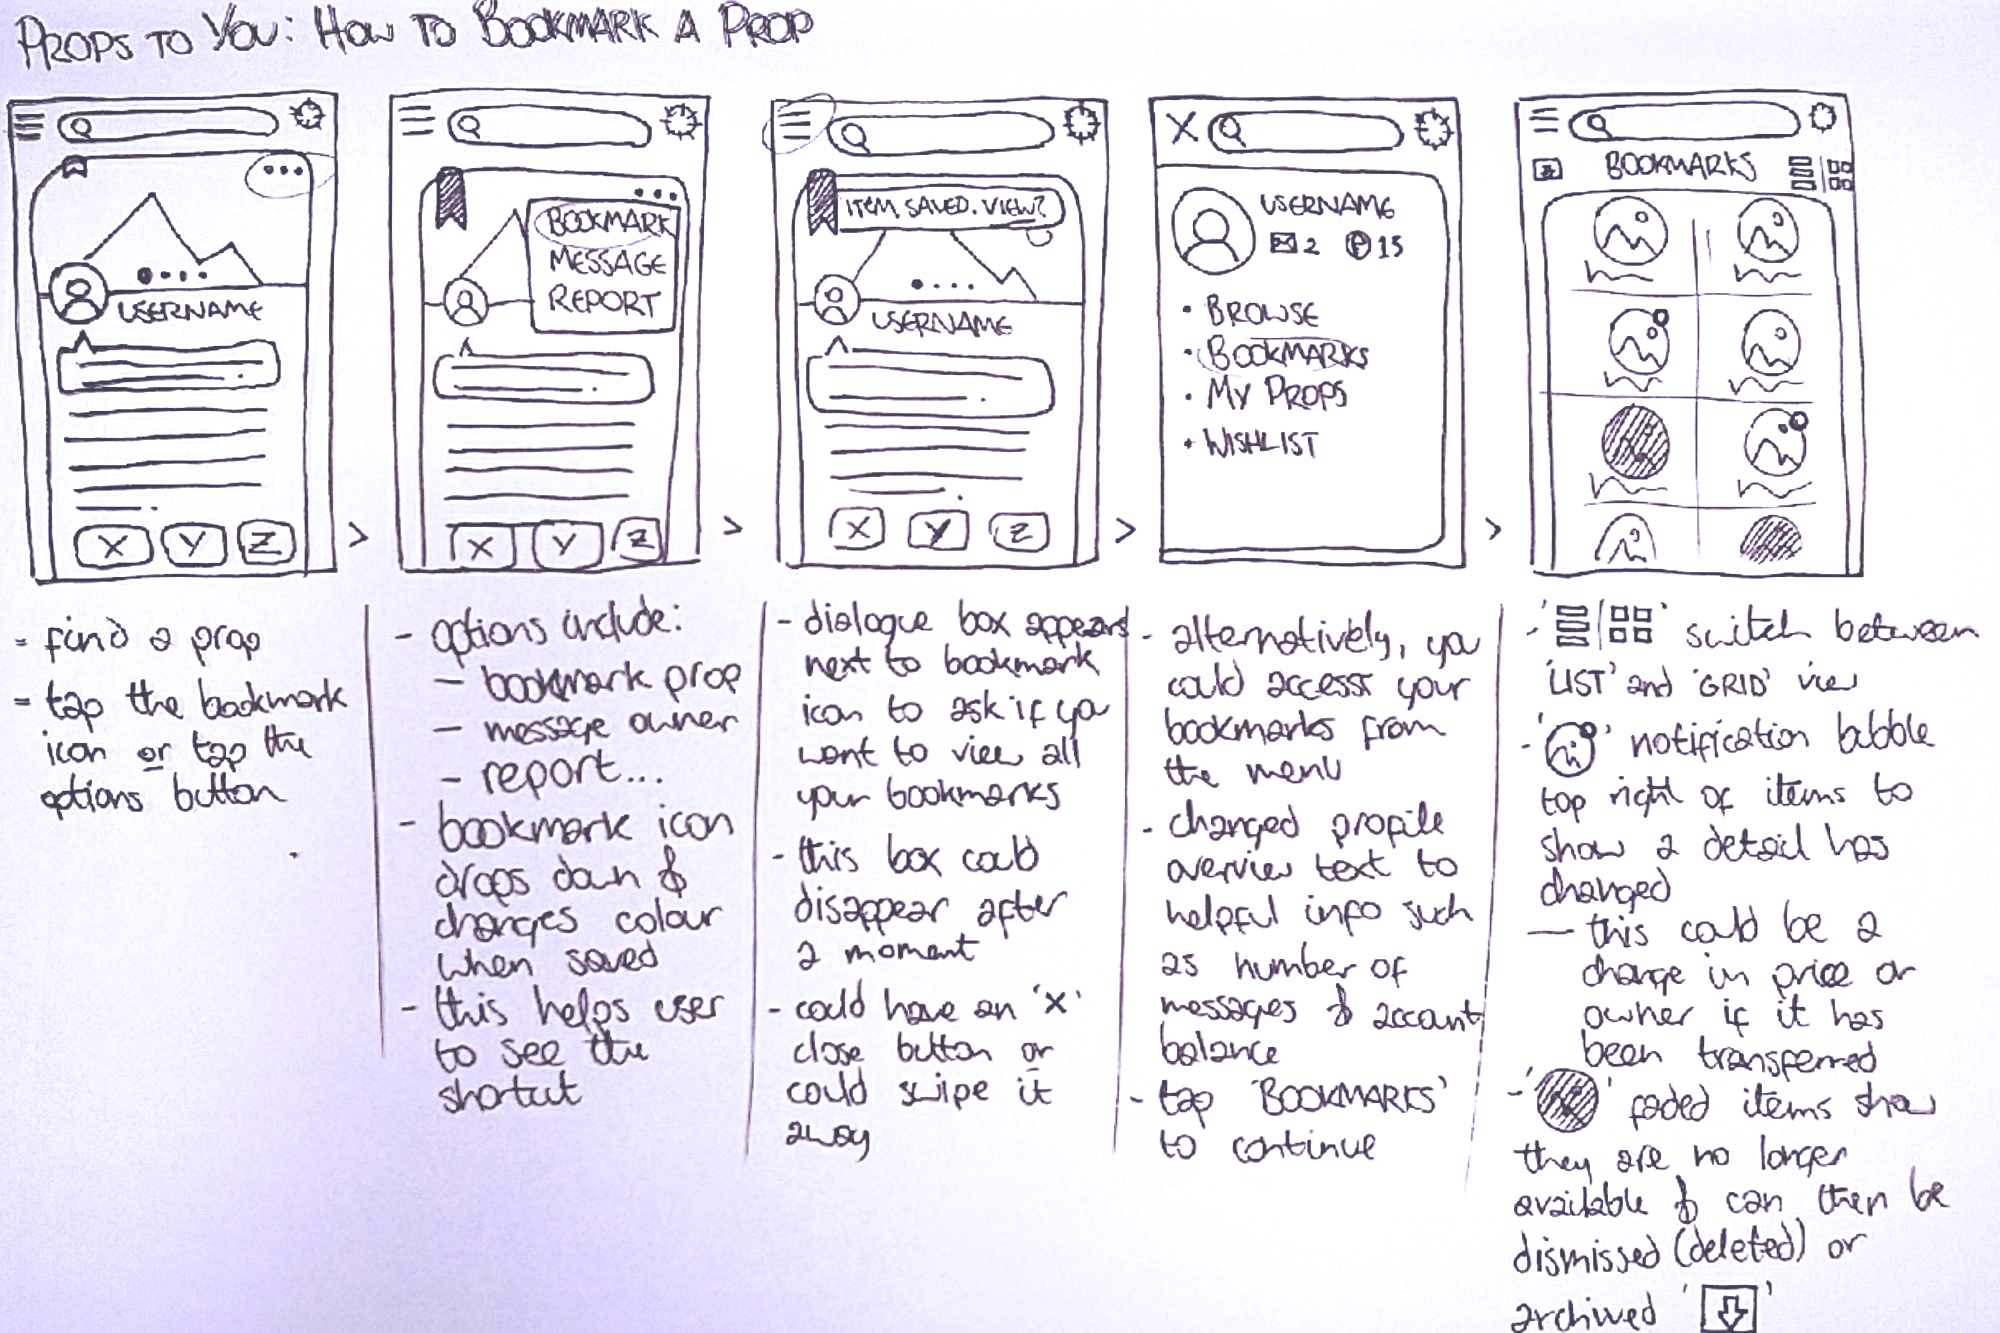 PROPS TO YOU: HOW TO BOOKMARK A PROP
USERNAME
X Y Z
>
- find a prop
- tap the bookmark
icon or tap the
options button
BOOKMARK
MESSAGE
REPORT
X Y Z
>
- options include:
- bookmark prop
- message owner
- report...
- bookmark icon
drops down &
changes colour
when saved
- this helps user
to see the
shortcut
ITEM SAVED. VIEW?
USERNAME
X Y Z
>
- dialogue box appears
next to bookmark
icon to ask if you
want to view all
your bookmarks
- this box could
disappear after
a moment
- could have an 'X'
close button or
could swipe it
away
X
USERNAME
2 P 15
• BROWSE
• BOOKMARKS
• MY PROPS
• WISHLIST
>
- alternatively, you
could access your
bookmarks from
the menu
- changed profile
overview text to
helpful info such
as number of
messages & account
balance
- tap 'BOOKMARKS'
to continue
BOOKMARKS
- ' | ' switch between
'LIST' and 'GRID' view
- ' ' notification bubble
top right of items to
show a detail has
changed
— this could be a
change in price or
owner if it has
been transferred
- ' ' faded items show
they are no longer
available & can then be
dismissed (deleted) or
archived ' '